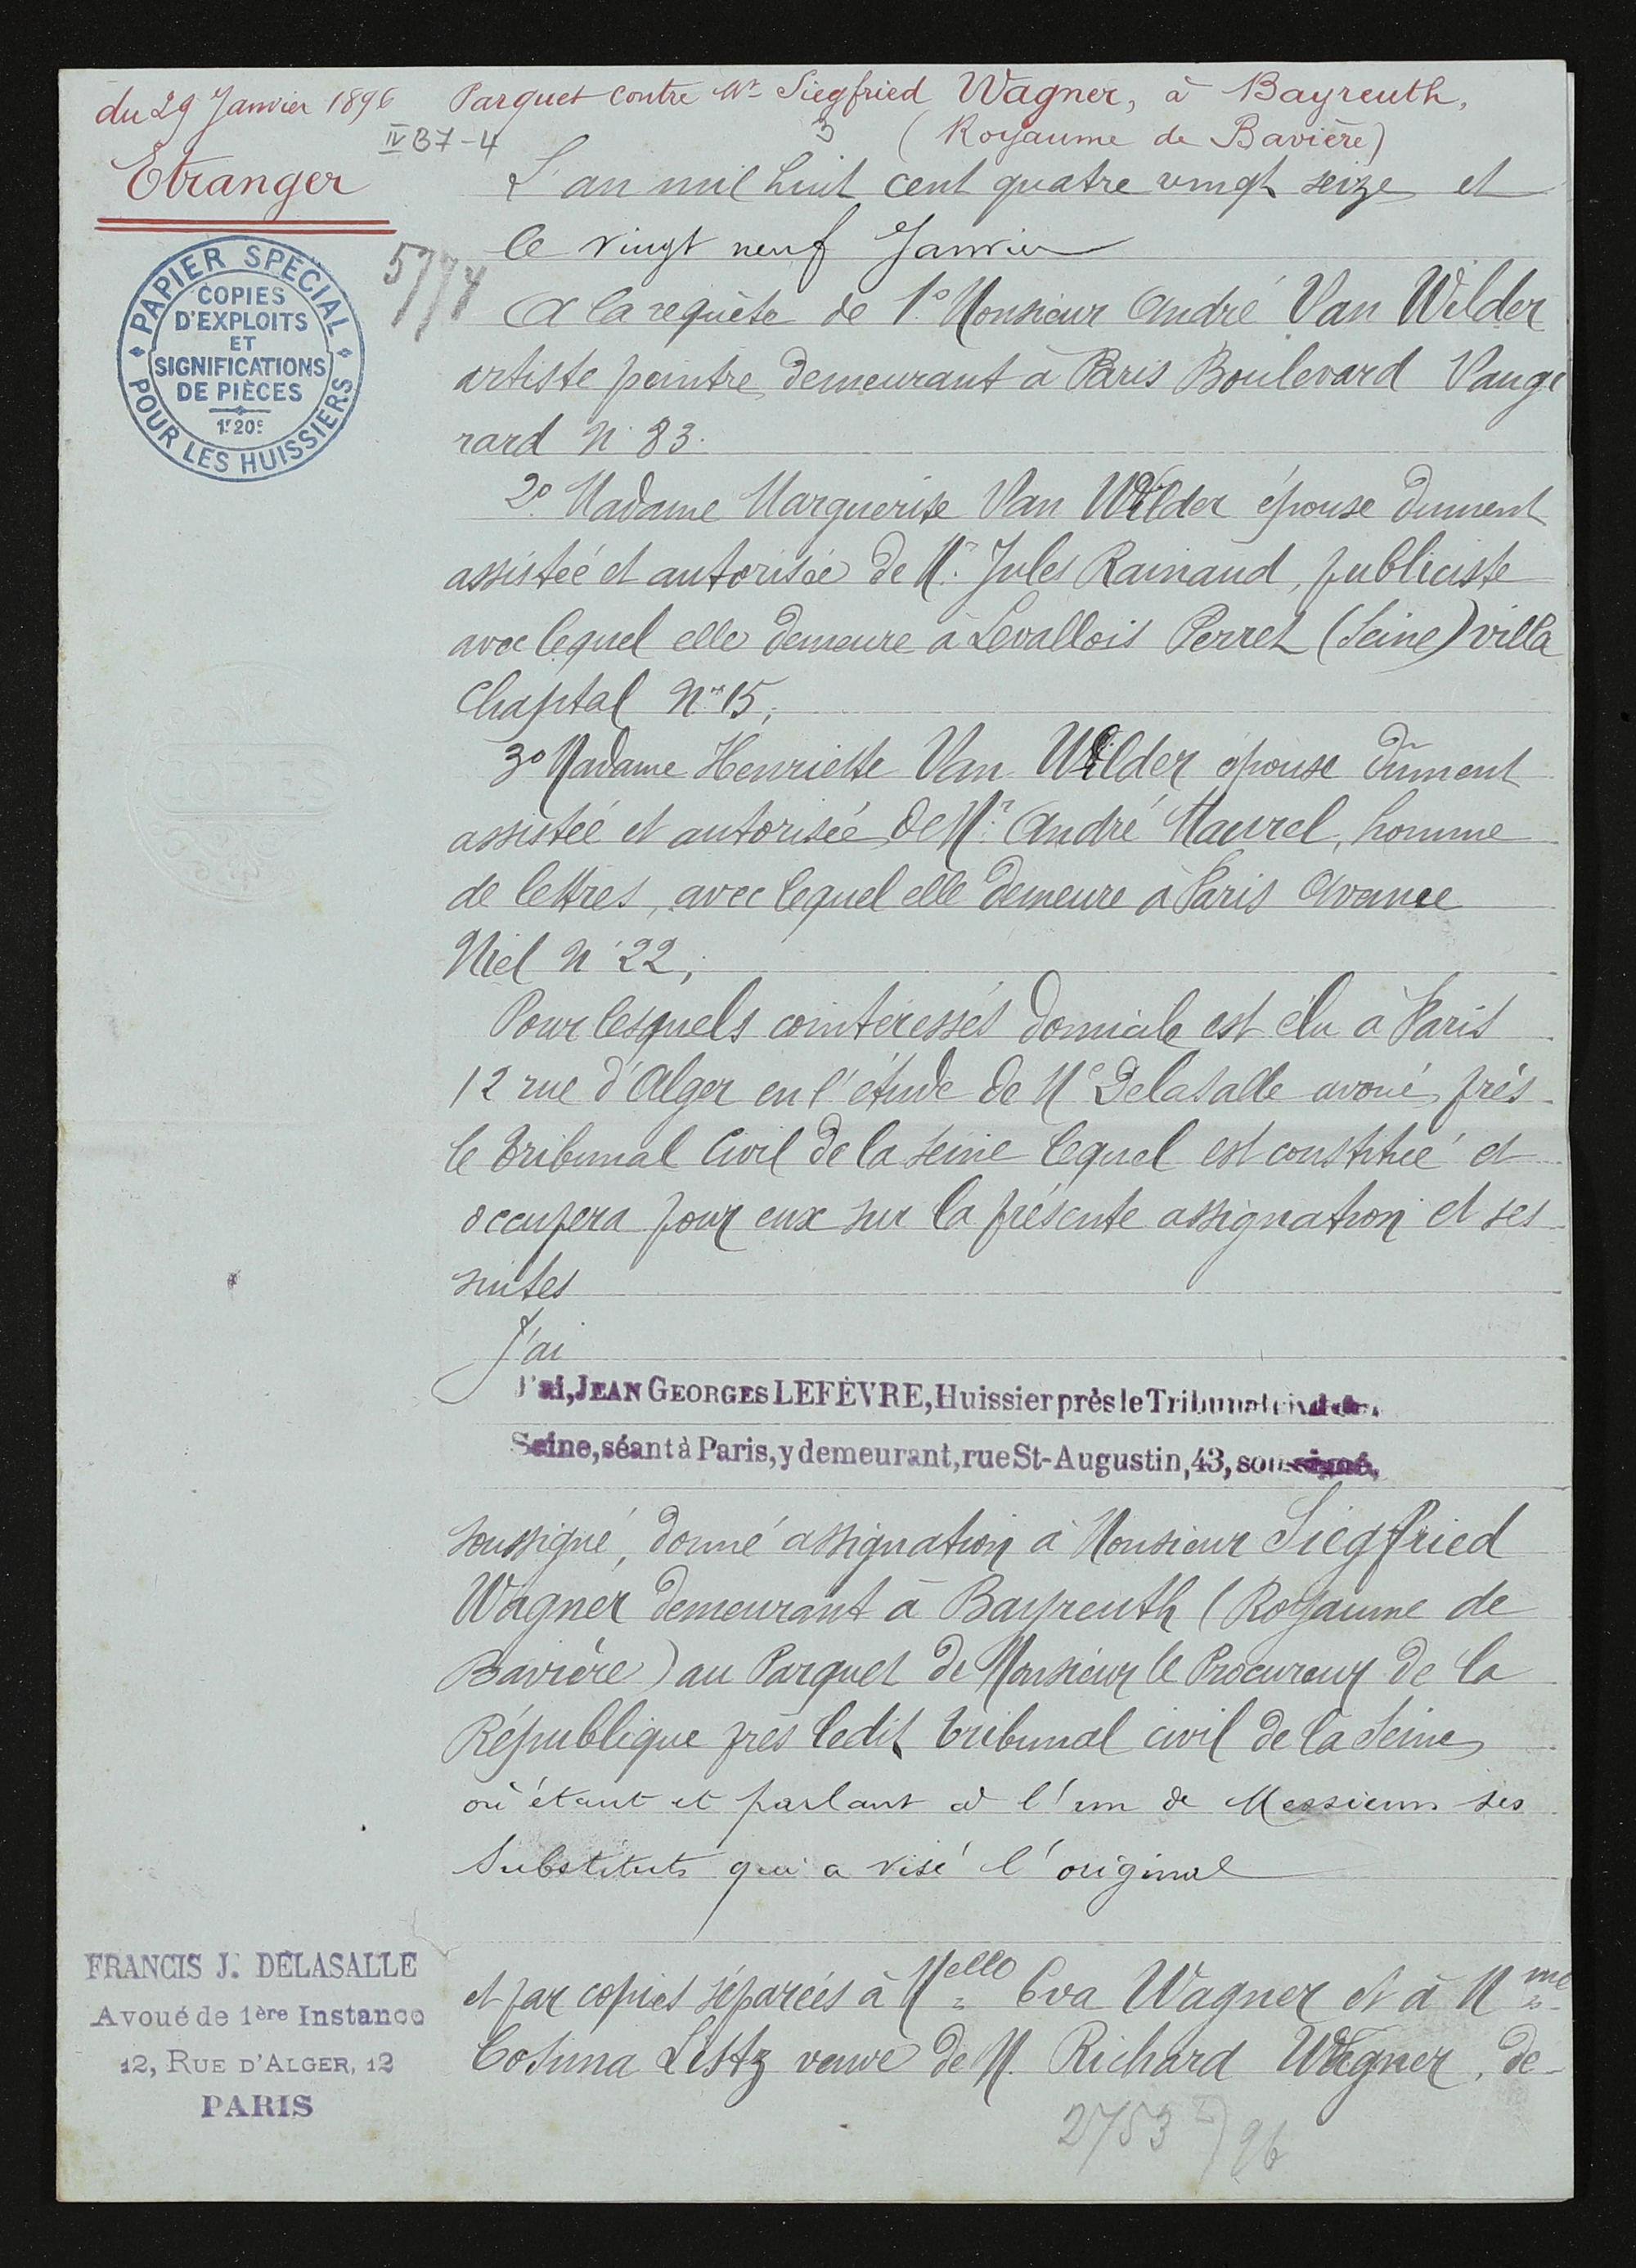 du 29 Janvier 1896 Parquet contre Mr Siegfried Wagner, à Bayreuth,
IV B7-4 3 (Royaume de Bavière)
Etranger
L'an mil huit cent quatre vingt seize et
le vingt neuf Janvier
PAPIER SPECIAL
POUR LES HUISSIERS
COPIES
D'EXPLOITS
ET
SIGNIFICATIONS
DE PIÈCES
1F20C
A la requête de 1º Monsieur André Van Wilder
artiste peintre demeurant à Paris Boulevard Vaugi
rard n° 83.
2º Madame Marguerite Van Wilder épouse dument
assistée et autorisée de Mr. Jules Rainaud, publiciste
avec lequel elle demeure à Levallois Perret (Seine) villa
Chaptal No 15,
3º Madame Henriette Van Wilder épouse dûment
assistée et autorisée de Mr. André Maurel, homme
de lettres, avec lequel elle demeure à Paris Avenue
Niel n° 22,
Pour lesquels cointéressés domicile est élu à Paris
12 rue d'Alger en l'étude de Me Delasalle avoué près
le tribunal Civil de la Seine lequel est constitué et
occupera pour eux sur la présente assignation et ses
suites
J'ai
J'ai, JEAN GEORGES LEFÈVRE, Huissier près le Tribunal civil de la
Seine, séant à Paris, y demeurant, rue St-Augustin, 43, soussigné,
soussigné, donné assignation à Monsieur Siegfried
Wagner demeurant à Bayreuth (Royaume de
Bavière) au Parquet de Monsieur le Procureur de la
République près ledit tribunal civil de la Seine
où étant et parlant à l'un de Messieurs ses
Substituts qui a visé l'original
et par copies séparées à Melle Eva Wagner et à Mme
Cosima Listz veuve de M. Richard Wagner, de-
FRANCIS J. DELASALLE
Avoué de 1ère Instance
12, RUE D'ALGER, 12
PARIS
2753 96